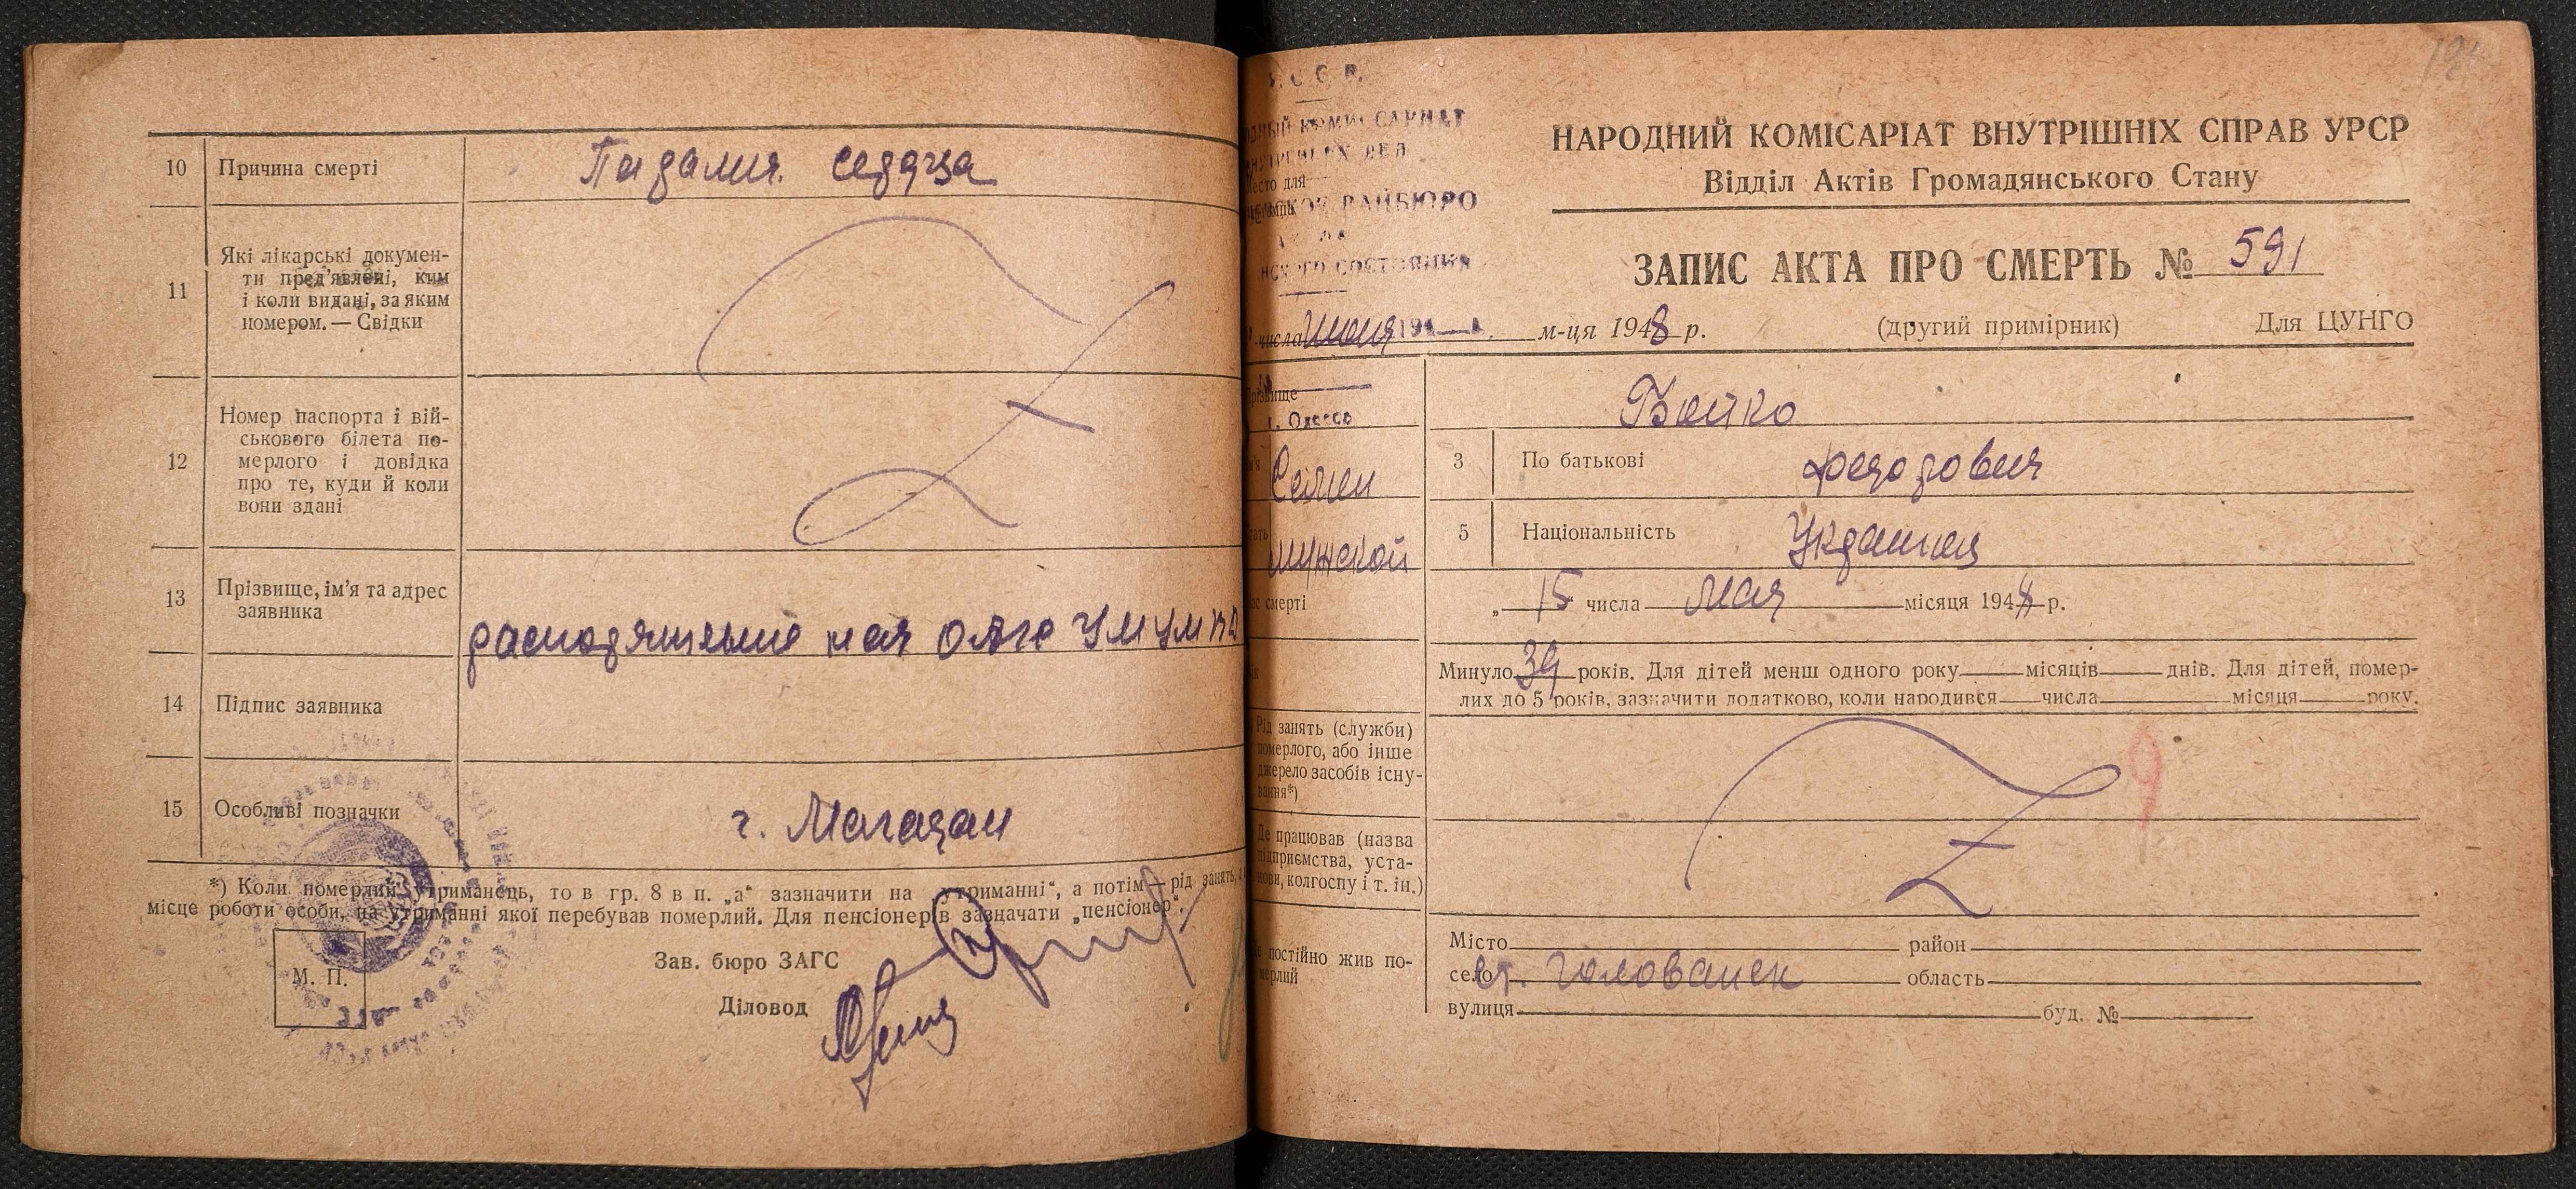 10 Причина смерті Паралич седца
11 Які лікарські докумен-
ти пред'явлені, ким
і коли видані, за яким
номером. — Свідки
12 Номер паспорта і вій-
ськового білета по-
мерлого і довідка
про те, куди й коли
вони здані
13 Прізвище, ім'я та адрес
заявника
распоряжение нач ОАГС УМ УМВД
14 Підпис заявника
15 Особливі позначки г. Магадан
*) Коли померлий утриманець, то в гр. 8 в п. „а“ зазначити на утриманні“, а потім — рід занять,
місце роботи особи, на утриманні якої перебував померлий. Для пенсіонерів зазначати „пенсіонер“.
М. П.
Зав. бюро ЗАГС
Діловод
КОМИССАРИАТ
РАЙБЮРО
СОСТОЯНИЯ
г. Одесса
НАРОДНИЙ КОМІСАРІАТ ВНУТРІШНІХ СПРАВ УРСР
Відділ Актів Громадянського Стану
ЗАПИС АКТА ПРО СМЕРТЬ № 591
числа июня м-ця 1948 р. (другий примірник) Для ЦУНГО
Прізвище Бойко
Семен 3 По батькові федорович
мужской 5 Національність Украинец
смерті „ 15 числа мая місяця 194 р.
Минуло 39 років. Для дітей менш одного року місяців днів. Для дітей, помер-
лих до 5 років, зазначити додатково, коли народився числа місяця року.
Рід занять (служби)
померлого, або інше
джерело засобів існу-
вання*)
Де працював (назва
підприємства, уста-
нови, колгоспу і т. ін.)
постійно жив по-
мерлий
Місто район
село ст. Голованск область
вулиця буд. №